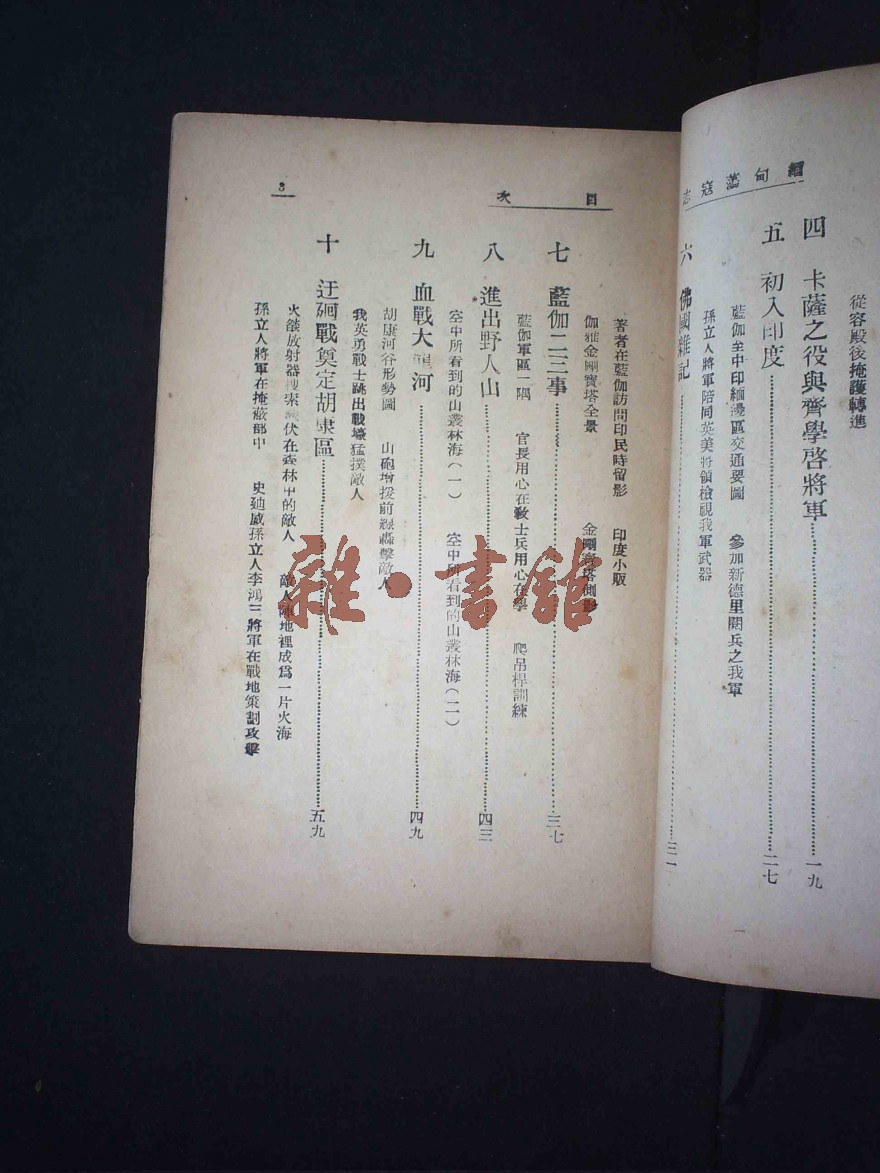 緬甸蕩寇志
從容殿後掩護轉進
四 卡薩之役與齊學啓將軍……一九
五 初入印度……二七
藍伽至中印緬邊區交通要圖 參加新德里閱兵之我軍
孫立人將軍陪同英美將領檢視我軍武器
六 佛國雜記……三一
目次
3
著者在藍伽訪問印民時留影 印度小販
伽雅金剛寶塔全景 金剛寶塔側影
七 藍伽二三事……三七
藍伽軍區一隅 官長用心在教士兵用心在學 爬吊桿訓練
八 進出野人山……四三
空中所看到的山叢林海(一) 空中所看到的山叢林海(二)
九 血戰大龍河……四九
胡康河谷形勢圖 山砲增援前線轟擊敵人
我英勇戰士跳出戰壕猛撲敵人
十 迂迴戰奠定胡康區……五九
火燄放射器搜索潛伏在森林中的敵人 敵人陣地裡成爲一片火海
孫立人將軍在掩蔽部中 史迪威孫立人李鴻三將軍在戰地策劃攻擊
雜·書館